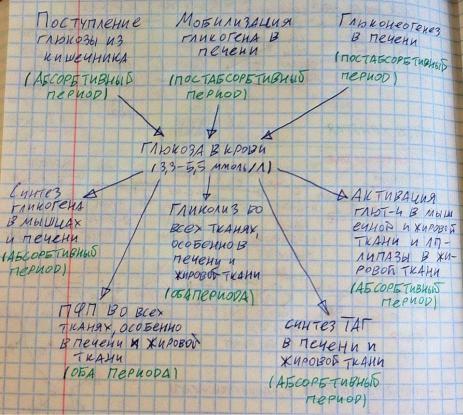 Поступление
глюкозы из
кишечника
(абсорбтивный
период)
Мобилизация
гликогена в
печени
(постабсорбтивный
период)
Глюконеогенез
в печени
(постабсорбтивный
период)
Глюкоза в крови
(3,3-5,5 ммоль/л)
Синтез
гликогена
в мышцах
и печени
(абсорбтивный
период)
Гликолиз во
всех тканях,
особенно в
печени и
жировой ткани
(оба периода)
Активация
ГЛЮТ-4 в мыш
ечной и жировой
ткани и ЛП-
липазы в жи-
ровой ткани
(абсорбтивный
период)
ПФП во всех
тканях, особенно
в печени и жировой
ткани
(оба периода)
Синтез ТАГ
в печени и
жировой ткани
(абсорбтивный
период)